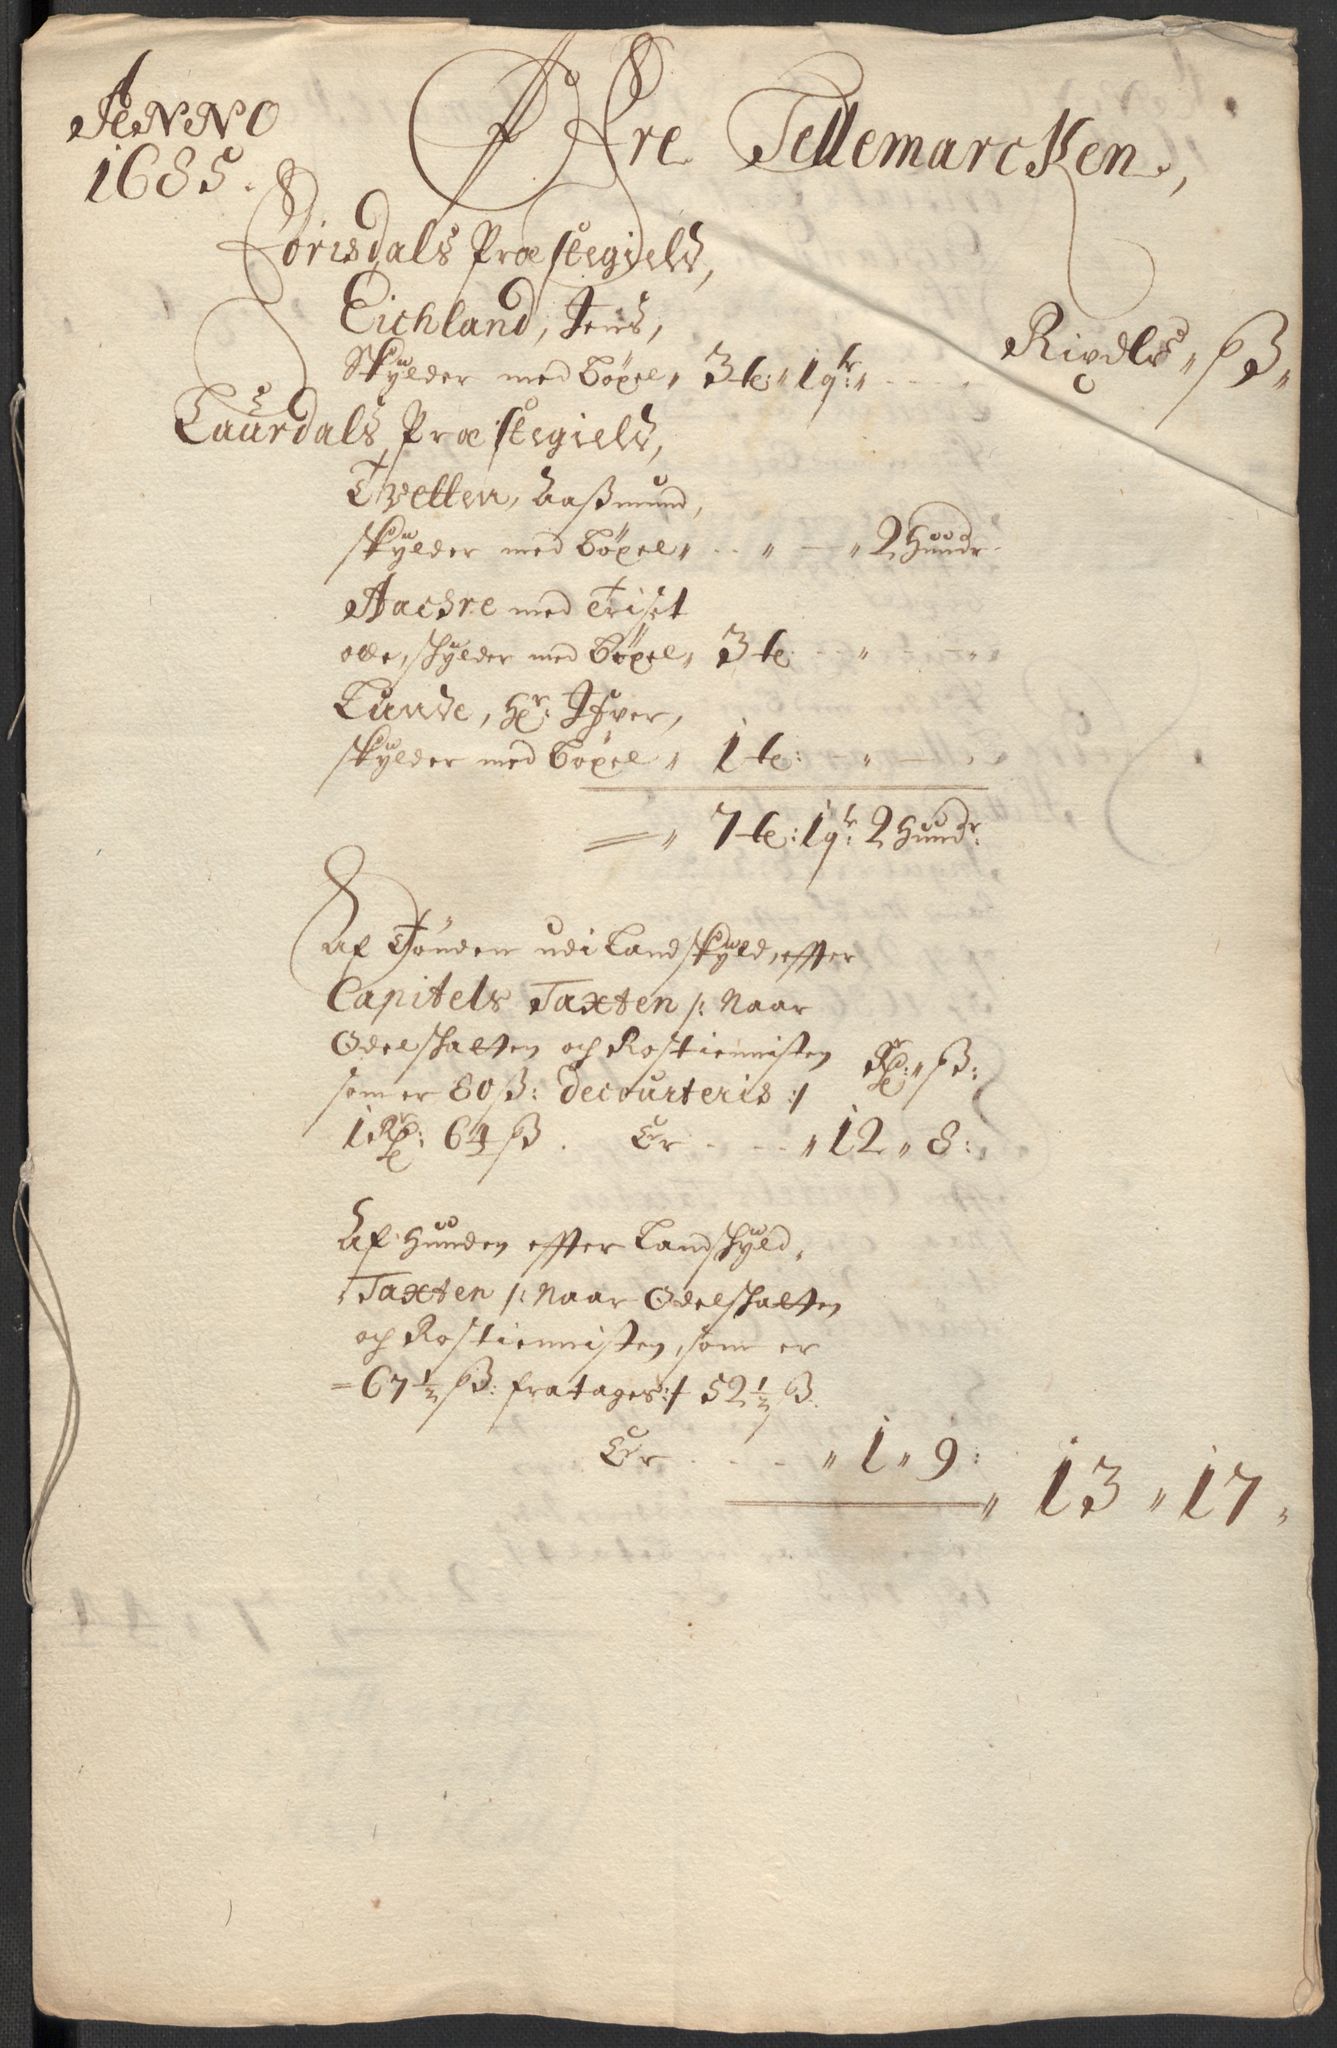 Anno
1685.
Øfre Tellemarcken,
Torisdals Præstegield,
Eichland, Jens,
Rixdlr " ß "
Skylder med Böxel " 3 t: " 1 qr: "
Laurdals Præstegield,
Tvetten, Aaßmund,
skylder med Böxel " . . " — " 2 Hundr
Aachre med Triset
olle, skylder med Böxel " 3 t: — "
Lunde, Hr: Ifver,
skylder med Böxel " 1 t: " —
" 7 t: 1 qr: 2 Hundr:
Af Tönden udi Landskyld, effter
Capitels Taxten /: Naar
Odelskatten och Rostiennisten
som er 80 ß: decourteris :/
Rdr: " ß:
1 Rdr: 64 ß . Er . . . " 12 " 8:
Af Hunden effter Landskyld
Taxten /: Naar Odelskatten
och Rostiennisten, som er
67 1/2 ß: fratages :/ 52 1/2 ß.
Er . . . " 1 " 9:
" 13 " 17 "